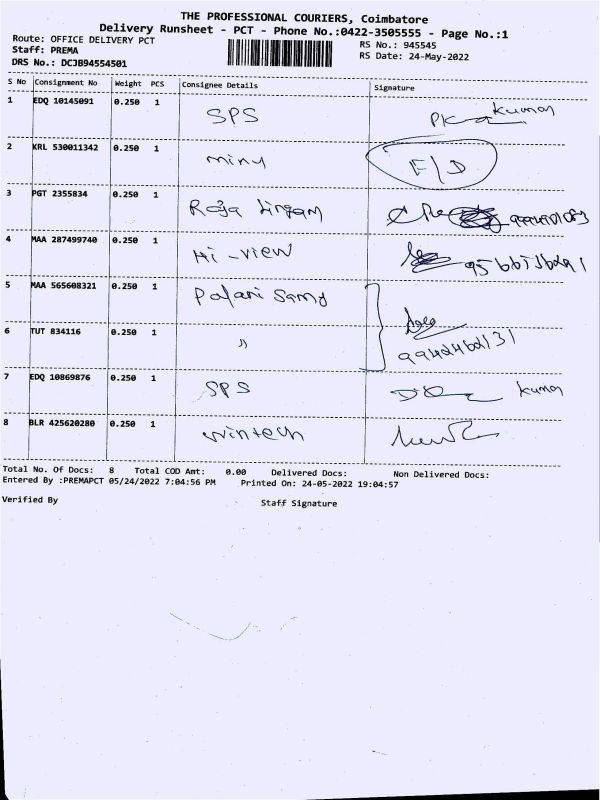 THE PROFESSIONAL COURIERS, Coimbatore
Delivery Runsheet - PCT - Phone No.:0422-3505555 - Page No.:1
Route: OFFICE DELIVERY PCT RS No.: 945545
Staff: PREMA RS Date: 24-May-2022
DRS No.: DCJB94554501
S No Consignment No Weight PCS Consignee Details Signature
1 EDQ 10145091 0.250 1 SPS Kumar
2 KRL 530011342 0.250 1 minu F/D
3 PGT 2355834 0.250 1 Raja Lingam
4 MAA 287499740 0.250 1 Hi-view
5 MAA 565608321 0.250 1 Palani Samy
6 TUT 834116 0.250 1 "
7 EDQ 10869876 0.250 1 SPS Kumar
8 BLR 425620280 0.250 1 wintech
Total No. Of Docs: 8 Total COD Amt: 0.00 Delivered Docs: Non Delivered Docs:
Entered By :PREMAPCT 05/24/2022 7:04:56 PM Printed On: 24-05-2022 19:04:57
Verified By Staff Signature